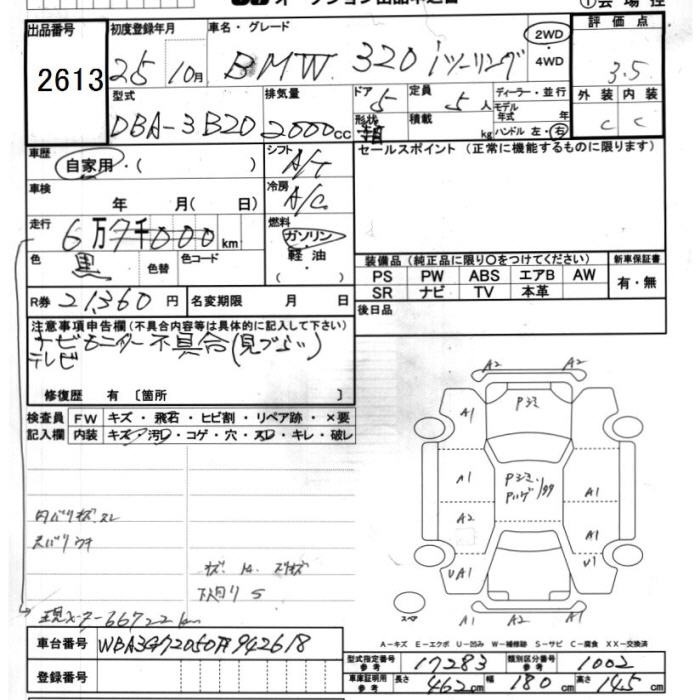 出品番号
2613
初度登録年月
25 10月
車名・グレード
BMW 320iツーリング
2WD
・4WD
①会場控
評価点
3.5
外装 内装
C C
型式
DBA-3B20
排気量
2000cc
ドア 5
形状 箱
定員 5人
積載 kg
ディーラー・並行
モデル年式 年
ハンドル 左・右
車歴
自家用・( )
シフト
A/T
セールスポイント (正常に機能するものに限ります)
車検
年 月( 日)
冷房
A/C
走行
6万7千000km
燃料
ガソリン
・
軽油
( )
色
黒
色替
色コード
R券 21,360円
名変期限 月 日
装備品 (純正品に限り○をつけてください)
新車保証書
PS PW ABS エアB AW
SR ナビ TV 本革
有・無
後日品
注意事項申告欄(不具合内容等は具体的に記入して下さい)
ナビモニター不具合(見づらい)
テレビ
修復歴 有〔箇所 〕
検査員記入欄
FW キズ・飛石・ヒビ割・リペア跡・×要
内装 キズ・汚レ・コゲ・穴・スレ・キレ・破レ
内バリキズ スレ
天バリウキ
下回りS
現メーター66722km
A2
A2
A1
Pジミ
A1
A1
A2
A1
A1
UA1
U1
A2
A2
スペア
A-キズ E-エクボ U-凹み W-補修跡 S-サビ C-腐食 XX-交換済
車台番号
登録番号
型式指定番号参考 17283
類別区分番号参考 1002
車庫証明用参考 長さ 462cm 幅 180cm 高さ 145cm